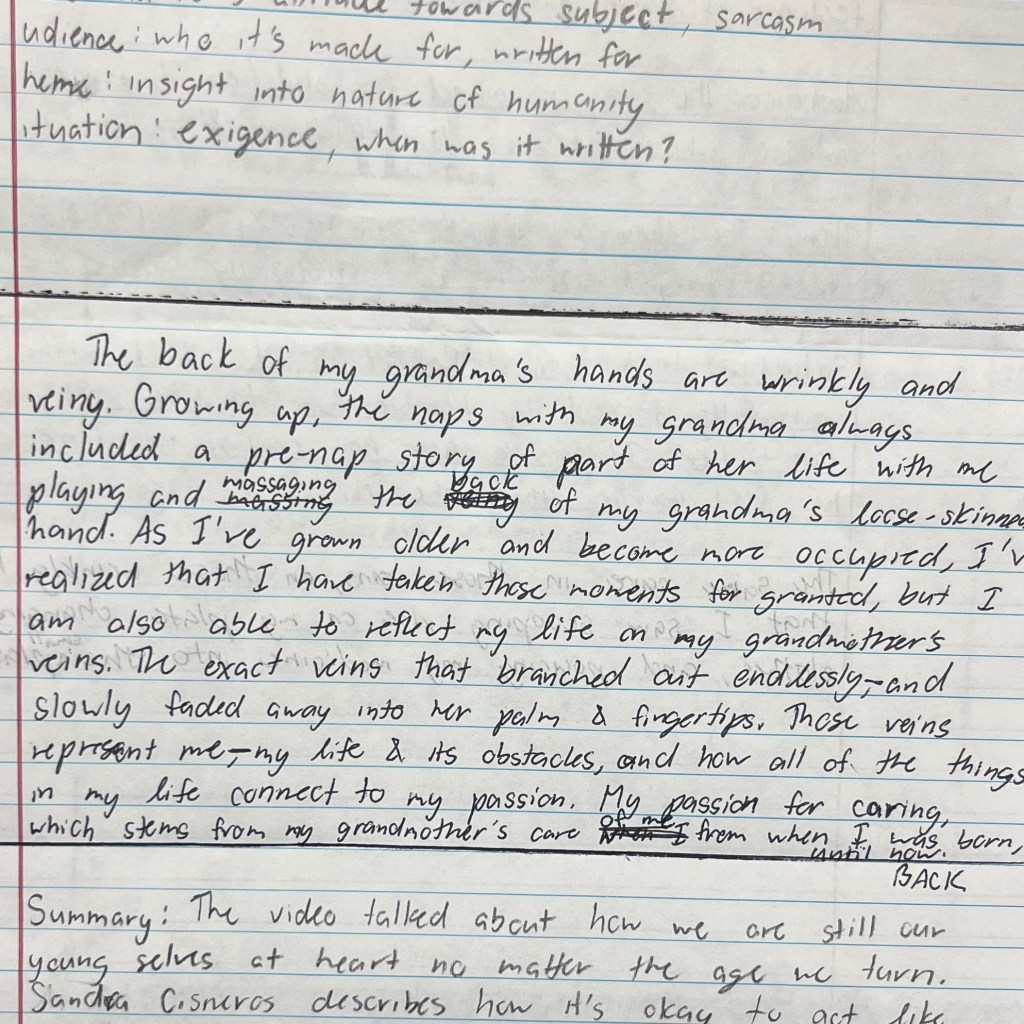 towards subject, sarcasm
udience: who it's made for, written for
heme: insight into nature of humanity
ituation: exigence, when was it written?
The back of my grandma's hands are wrinkly and
veiny. Growing up, the naps with my grandma always
included a pre-nap story of part of her life with me
playing and massaging the back of my grandma's loose-skinned
hand. As I've grown older and become more occupied, I'v
realized that I have taken those moments for granted, but I
am also able to reflect my life on my grandmother's
veins. The exact veins that branched out endlessly, and
slowly faded away into her palm & fingertips. Those veins
represent me, my life & its obstacles, and how all of the things
in my life connect to my passion. My passion for caring,
which stems from my grandmother's care of me from when I was born,
until now.
BACK
Summary: The video talked about how we are still our
young selves at heart no matter the age we turn.
Sandra Cisneros describes how it's okay to act like